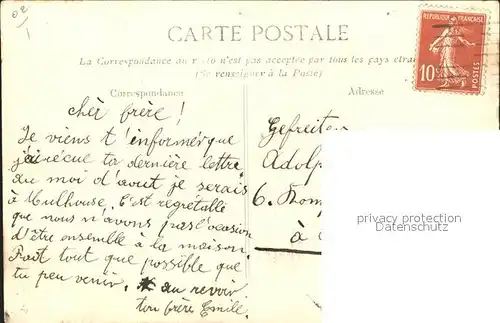 CARTE POSTALE
REPUBLIQUE FRANÇAISE
10c
POSTES
La Correspondance au recto n'est pas acceptée par tous les pays étran
(Se renseigner à la Poste)
Correspondance
Adresse
cher frère!
Je viens t'informer que
j'ai recue ta dernière lettre
au moi d'aout je serais
à Mulhouse. C'est regretable
que nous n'avons pas l'ocasion
d'être ensemble à la maison.
Faot tout que possible que
tu peu venir. au revoir
ton frère Emile.
Gefreiten
Adolp
6.
à
privacy protection
Datenschutz